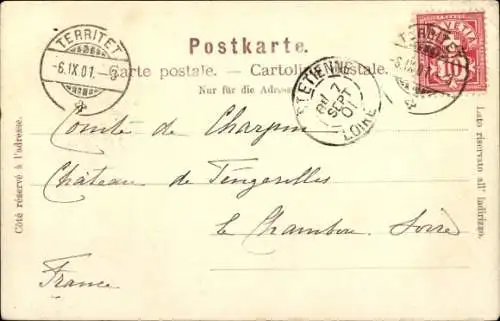 TERRITET
-6.IX.01.-6
Postkarte.
Carte postale. — Cartolina postale.
Nur für die Adresse
ST ETIENNE
7
SEPT
01
LOIRE
HELVETIA
10
TERRITET
-6.IX.01
Côté réservé à l'adresse.
Lato riservato all' indirizzo.
Comte de Charpin
Château de Feugerolles
le Chambon. Loire
France